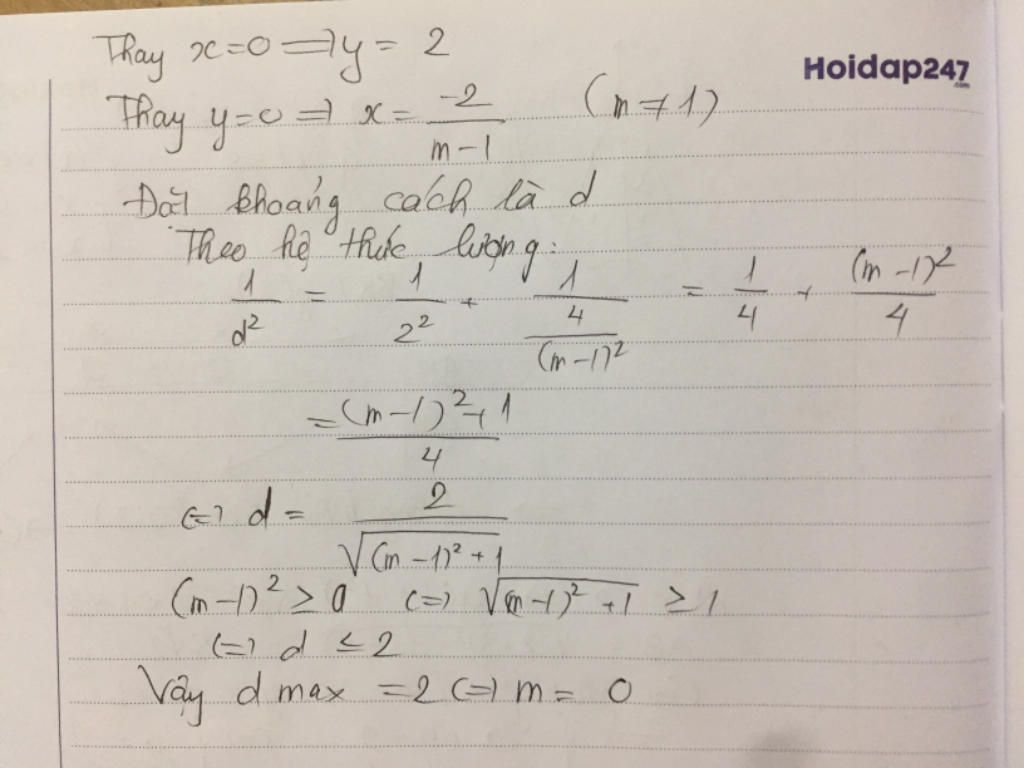 Thay x=0 => y = 2
Hoidap247
.com
Thay y=0 => x = -2/(m-1) (m ≠ 1)
Đặt khoảng cách là d
Theo hệ thức lượng:
1/d² = 1/2² + 1/(4/(m-1)²) = 1/4 + (m-1)²/4
= ((m-1)²+1)/4
<=> d = 2/√((m-1)²+1)
(m-1)² ≥ 0 <=> √((m-1)²+1) ≥ 1
<=> d ≤ 2
Vậy d max = 2 <=> m = 0